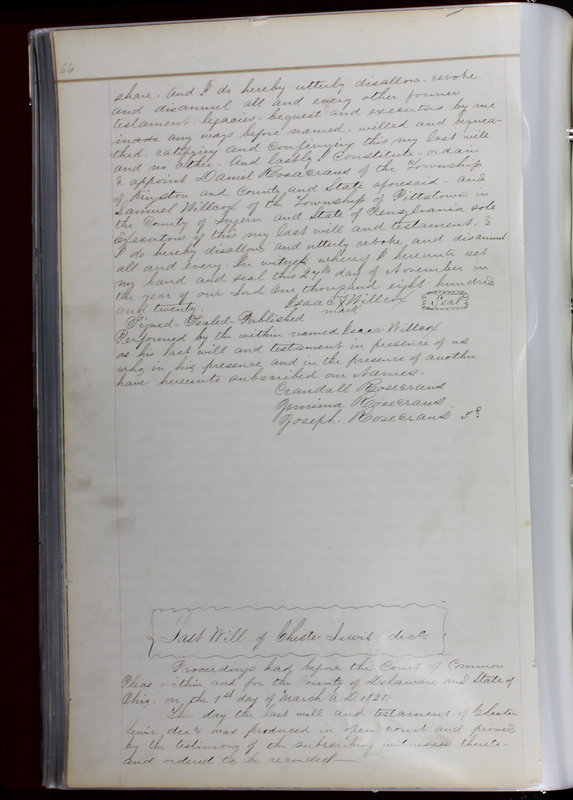 66
share. And I do hereby utterly disallow - revoke -
and disannul all and every other former
testament - legacies - bequest and executors by me
made any ways before named - willed and
thed - ratifying and confirming this my last will
and no other - And lastly I Constitute - ordain
& appoint Daniel Rosacrans of the Township
of Kingston and County and State aforesaid - and
Samuel Willcox of the Township of Pittstown in
the County of and State of Pensylvania sole
Executors of this my last will and testament. &
I do hereby disallow and utterly revoke and disannul
all and every. In witness whereof I hereunto set
my hand and seal this 27th day of November in
the year of our Lord One thousand eight hundred
and twenty. Isaac his X mark Willcox (Seal)
Signed - Sealed - Published
Performed by the within named Isaac Willcox
as his last will and testament in presence of us
who in his presence and in the presence of another
have hereunto subscribed our Names.
Crandall Rosecrans
Jemima Rosecrans
Joseph. Rosecrans
Last Will of Chester Lewis decd.
Proceedings had before the Court of Common
Pleas within and for the County of Delaware and State of
Ohio on the 1st day of March A D
day the last will and testament of Chester
Lewis decd was produced in open court and proved
by the testimony of the subscribing witnesses thereto -
and ordered to be recorded -